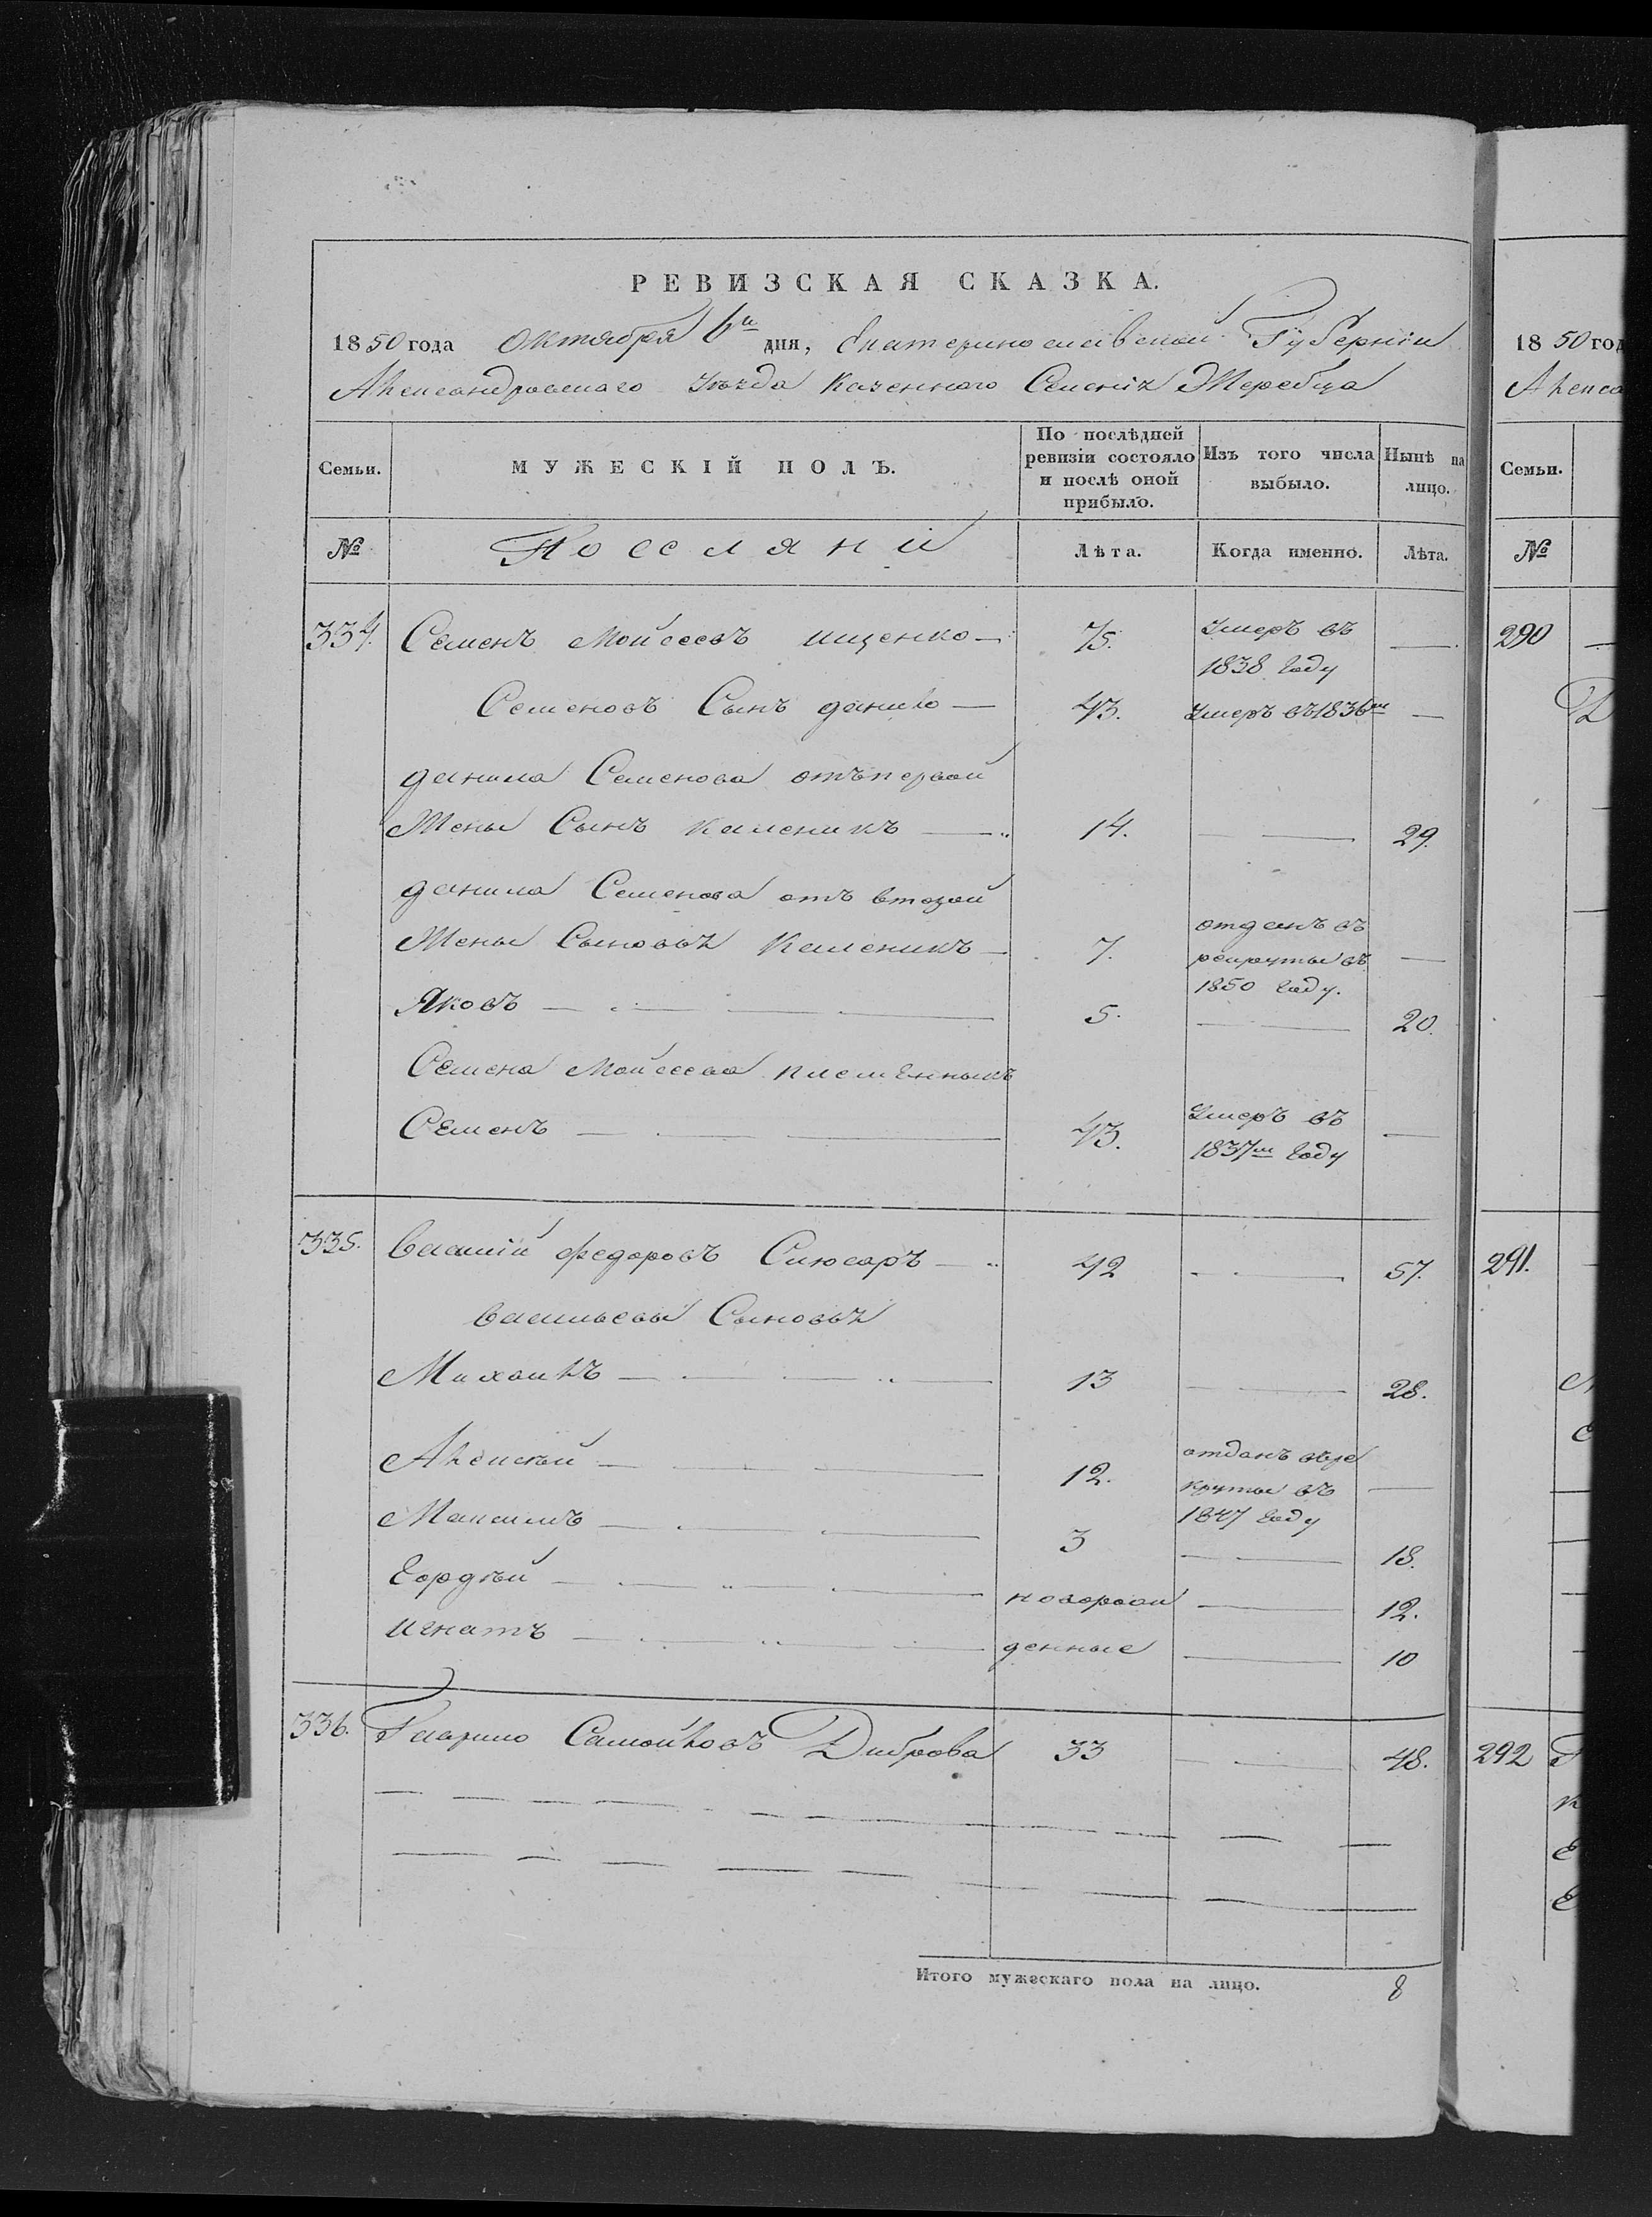 РЕВИЗСКАЯ СКАЗКА.
1850 года Октября 6го дня, Екатеринославской Губерніи
Александровскаго Уѣзда Казенного Селенія Жеребца
Семьи. МУЖЕСКІЙ ПОЛЪ. По послѣдней ревизіи состояло и послѣ оной прибыло. Изъ того числа выбыло. Нынѣ на лицо.
№ Поселяни Лѣта. Когда именно. Лѣта.
334. Семенъ Мойсеевъ Ищенко — 75. Умеръ въ 1838 году —
Семеновъ Сынъ данило — 43. Умеръ въ 1836м —
данила Семенова отъ первой
Жены Сынъ Каленикъ — 14. — 29.
данила Семенова отъ второй
Жены Сыновья Каленикъ — 7. отданъ въ рекруты въ 1850 году. —
Яковъ — 5. — 20.
Семена Мойсеева племенникъ
Семенъ — 43. Умеръ въ 1837м году —
335. Василій федоровъ Слюсаръ — 42 — 57.
васильевы Сыновья
Михаилъ — 13 — 28.
Алексѣй — 12. отданъ въ рекруты въ 1847 году —
Максимъ — 3 — 18.
Гордѣй — новорож — 12.
игнатъ — денные — 10
336. Гаврило Самойловъ Диброва 33 — 48.
Итого мужескаго пола на лицо. 8
1850 год
Алекса
Семьи.
№
290
291.
292